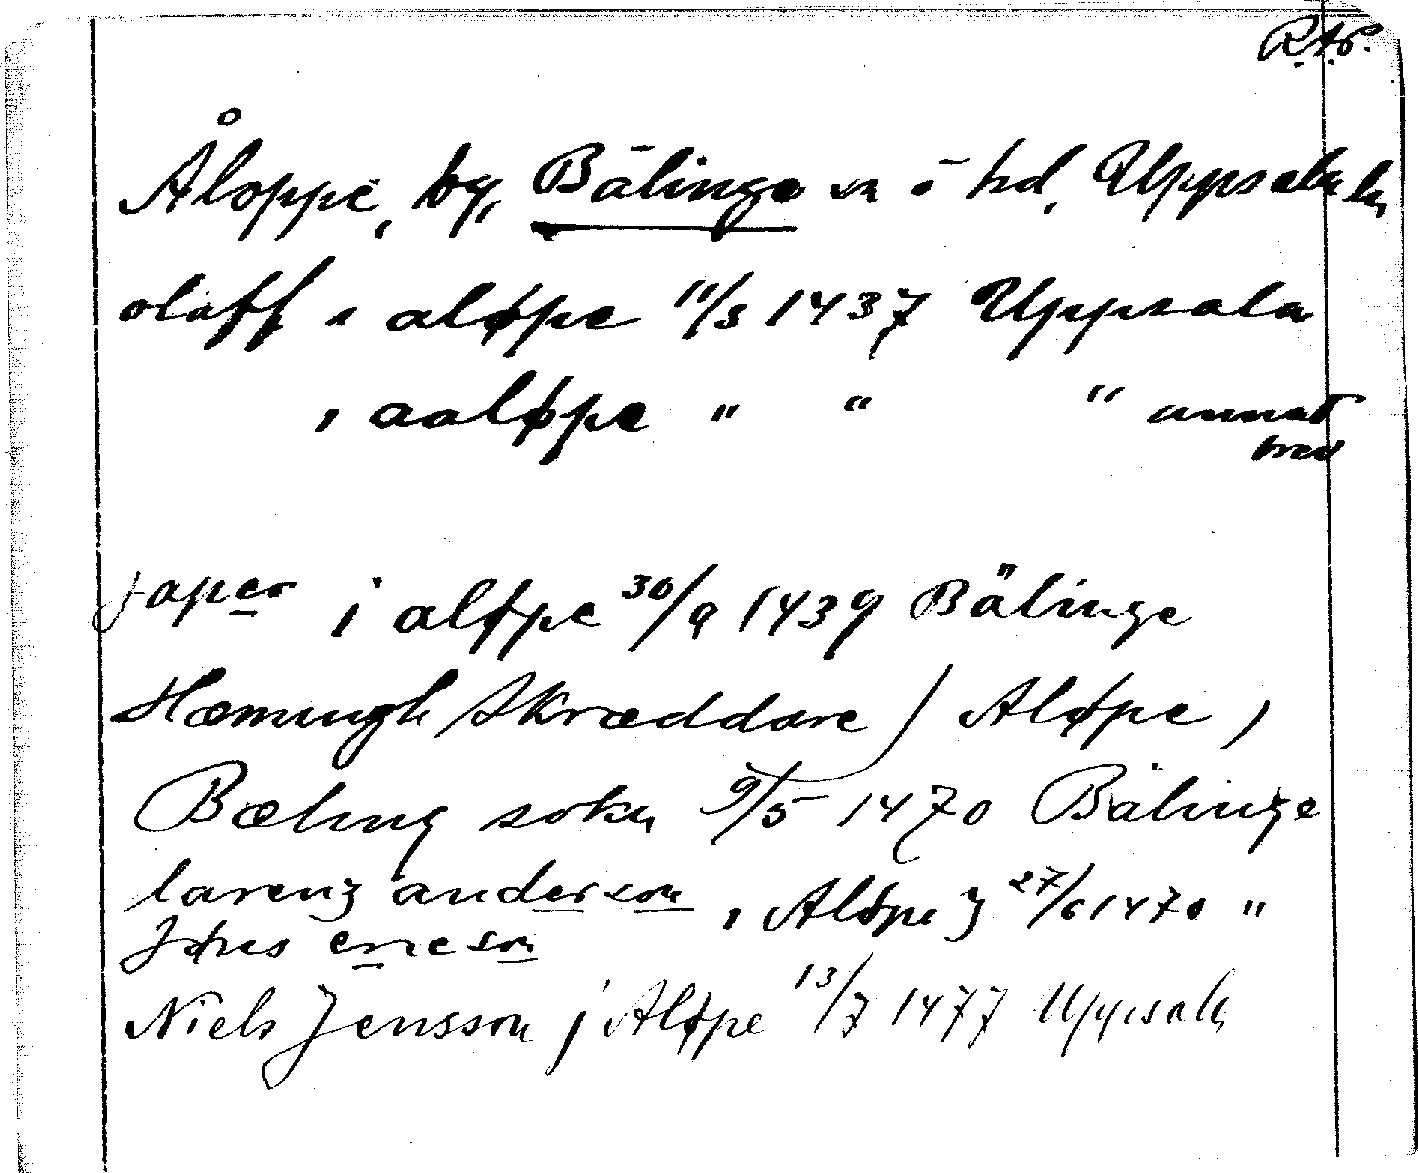 RAP.
Åloppe, by, Bälinge sn o hd, Uppsala län
olaff i aløpe 11/3 1437 Uppsala
i aaløpe " " " annat
brev
japer i aløpe 30/9 1439 Bälinge
Hæmingh Skræddare j Aløpe,
Bæling sokn 9/5 1470 Bälinge
larenz anderson i Aløpe 27/6 1470 "
Jøns ericson
Niels Jensson j Aløpe 13/7 1477 Uppsala